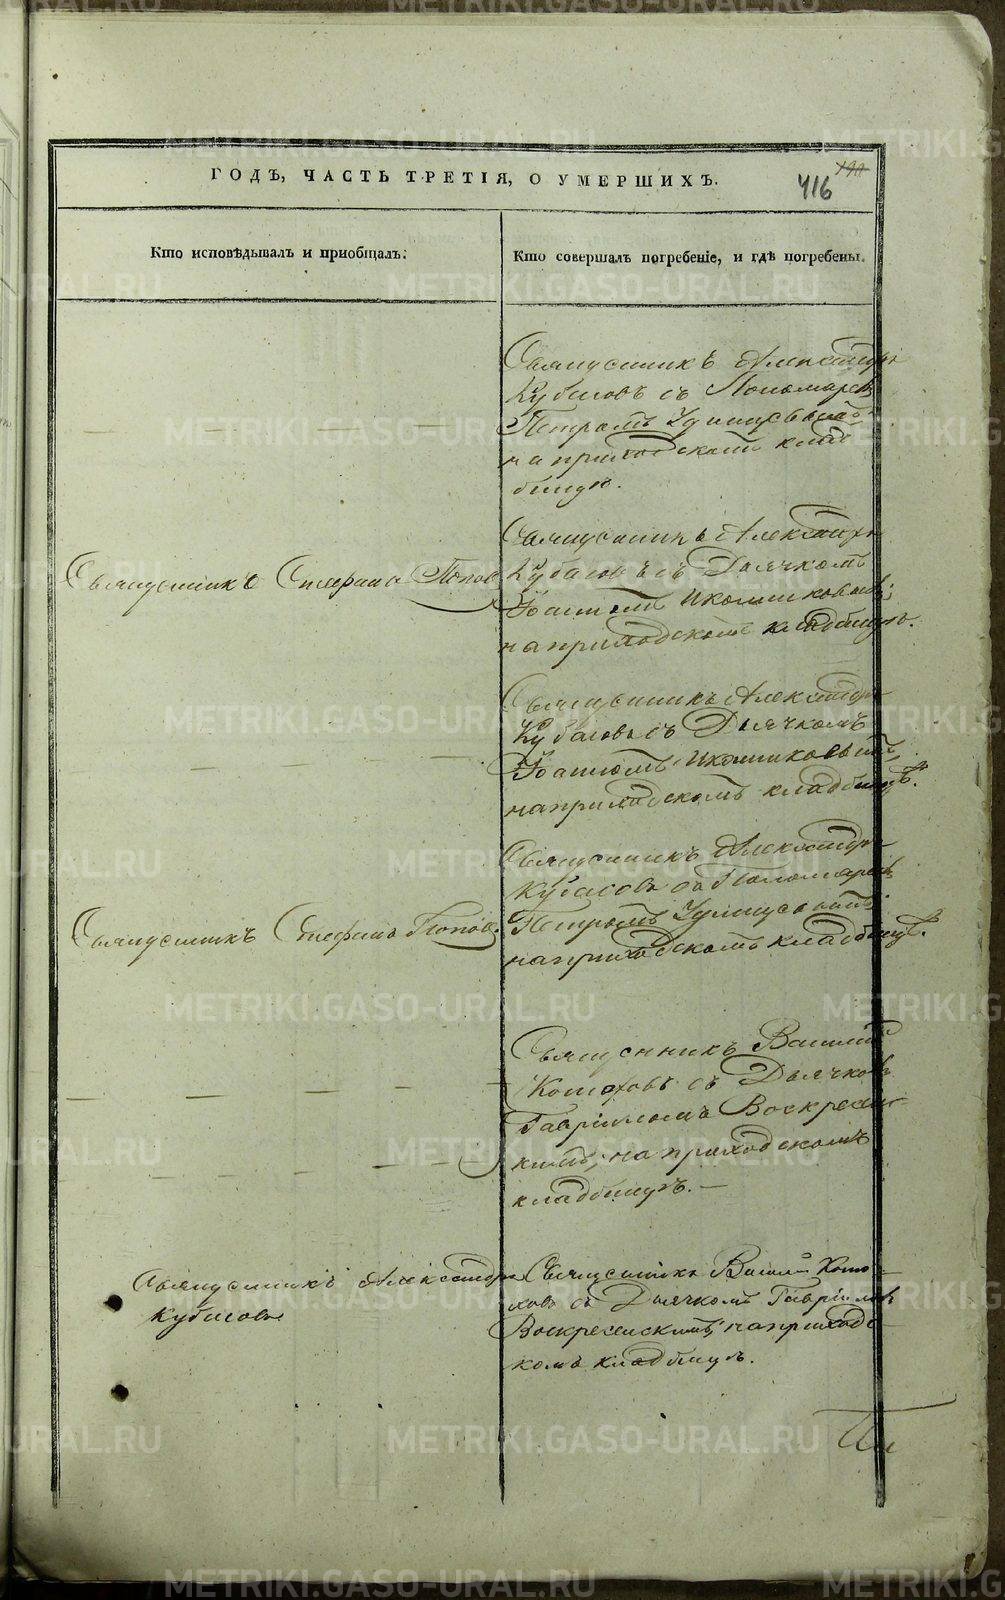 ГОДЪ, ЧАСТЬ ТРЕТІЯ, О УМЕРШИХЪ.
416
Кто исповѣдывалъ и пріобщалъ.
Кто совершалъ погребеніе, и гдѣ погребены.
Священникъ Александръ
Кубасовъ съ Пономаремъ
Петромъ
на приходскомъ клад
бищѣ.
Священникъ Стефанъ Попов
Священникъ Александръ
Кубасовъ съ Дьячкомъ
Иоанномъ Иконниковымъ;
на приходскомъ кладбищѣ.
Священникъ Александръ
Кубасовъ съ Дьячкомъ
Иоанномъ Иконниковымъ,
на приходскомъ кладбищѣ.
Священникъ Стефанъ Поповъ.
Священникъ Александръ
Кубасовъ съ Пономаремъ
Петромъ
на приходскомъ кладбищѣ.
Священникъ Василий
съ Дьячкомъ
Гавріиломъ Воскресен
кимъ; на приходскомъ
кладбищѣ.
Священникъ Александръ
Кубасовъ
Священникъ Василий
съ Дьячкомъ Гавріиломъ
Воскресенскимъ, на приход
комъ кладбищѣ.
METRIKI.GASO-URAL.RU